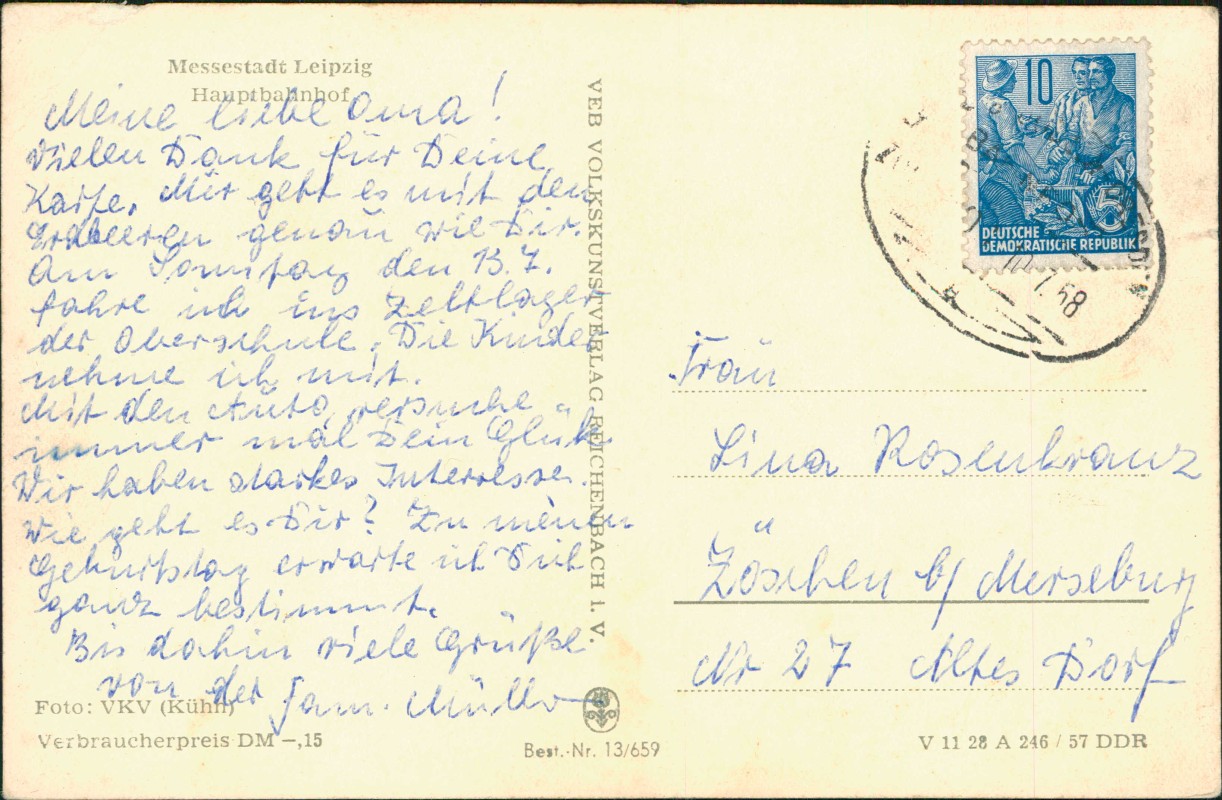 Messestadt Leipzig
Hauptbahnhof
Meine liebe Oma!
Vielen Dank für Deine
Karte. Mir geht es mit den
Erdbeeren genau wie Dir.
Am Sonntag den 13.7.
fahre ich ins Zeltlager
der Oberschule. Die Kinder
nehme ich mit.
Mit den Auto versuche
immer mal Dein Glück.
Wir haben starkes Interresse.
Wie geht es Dir? Zu meinen
Geburtstag erwarte ich Dich
ganz bestimmt.
Bis dahin viele Grüße
von der Fam. Müller
Foto: VKV (Kühn)
Verbraucherpreis DM —,15
VEB VOLKSKUNSTVERLAG REICHENBACH i. V.
Best.-Nr. 13/659
10
5
DEUTSCHE
DEMOKRATISCHE REPUBLIK
7.58
Frau
Lina Rosenkranz
Zöschen b/ Merseburg
Nr 27 Altes Dorf
V 11 28 A 246 / 57 DDR